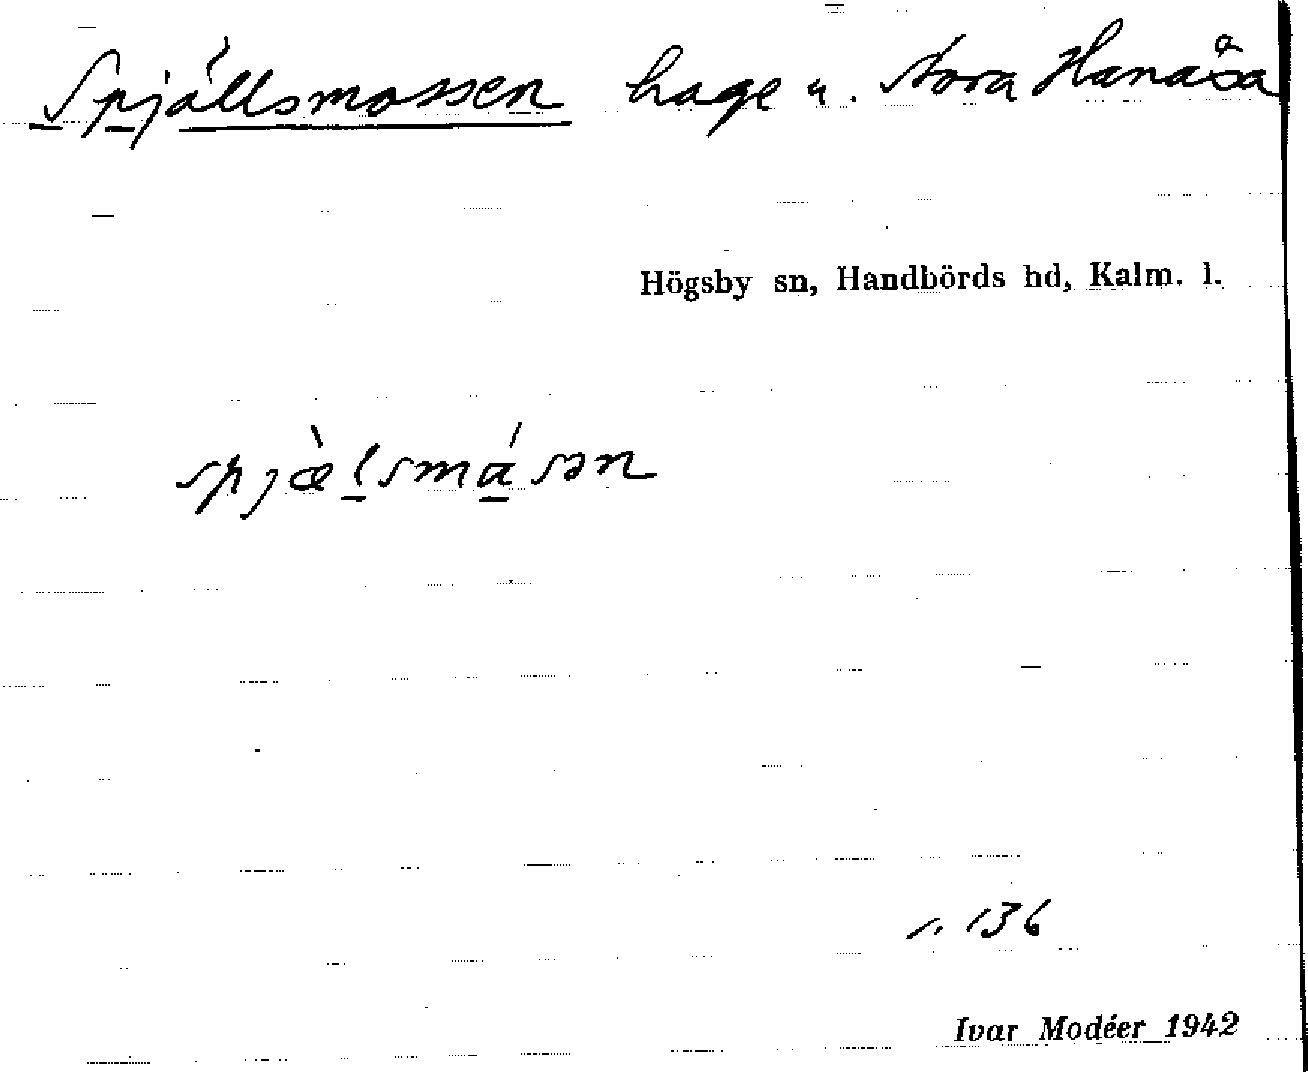 Spjällsmossen hage u. Stora Hanåsa
Högsby sn, Handbörds hd, Kalm. l.
spjæ̀lsmásən
s. 136
Ivar Modéer 1942